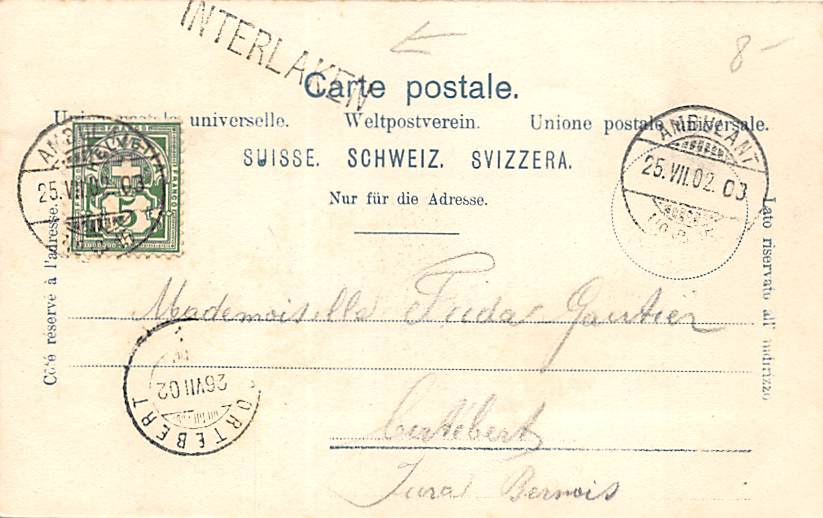 INTERLAKEN
8-
Carte postale.
Union postale universelle. Weltpostverein. Unione postale universale.
SUISSE. SCHWEIZ. SVIZZERA.
Nur für die Adresse.
AMBULANT
25.VII.02. 03
HELVETIA
FRANCO
5
AMBULANT
25.VII.02. 03
Côté réservé à l'adresse.
Lato riservato all' indirizzo
Mademoiselle Frida Gautier
Cortébert
Jura Bernois
26 VII 02
CORTÉBERT